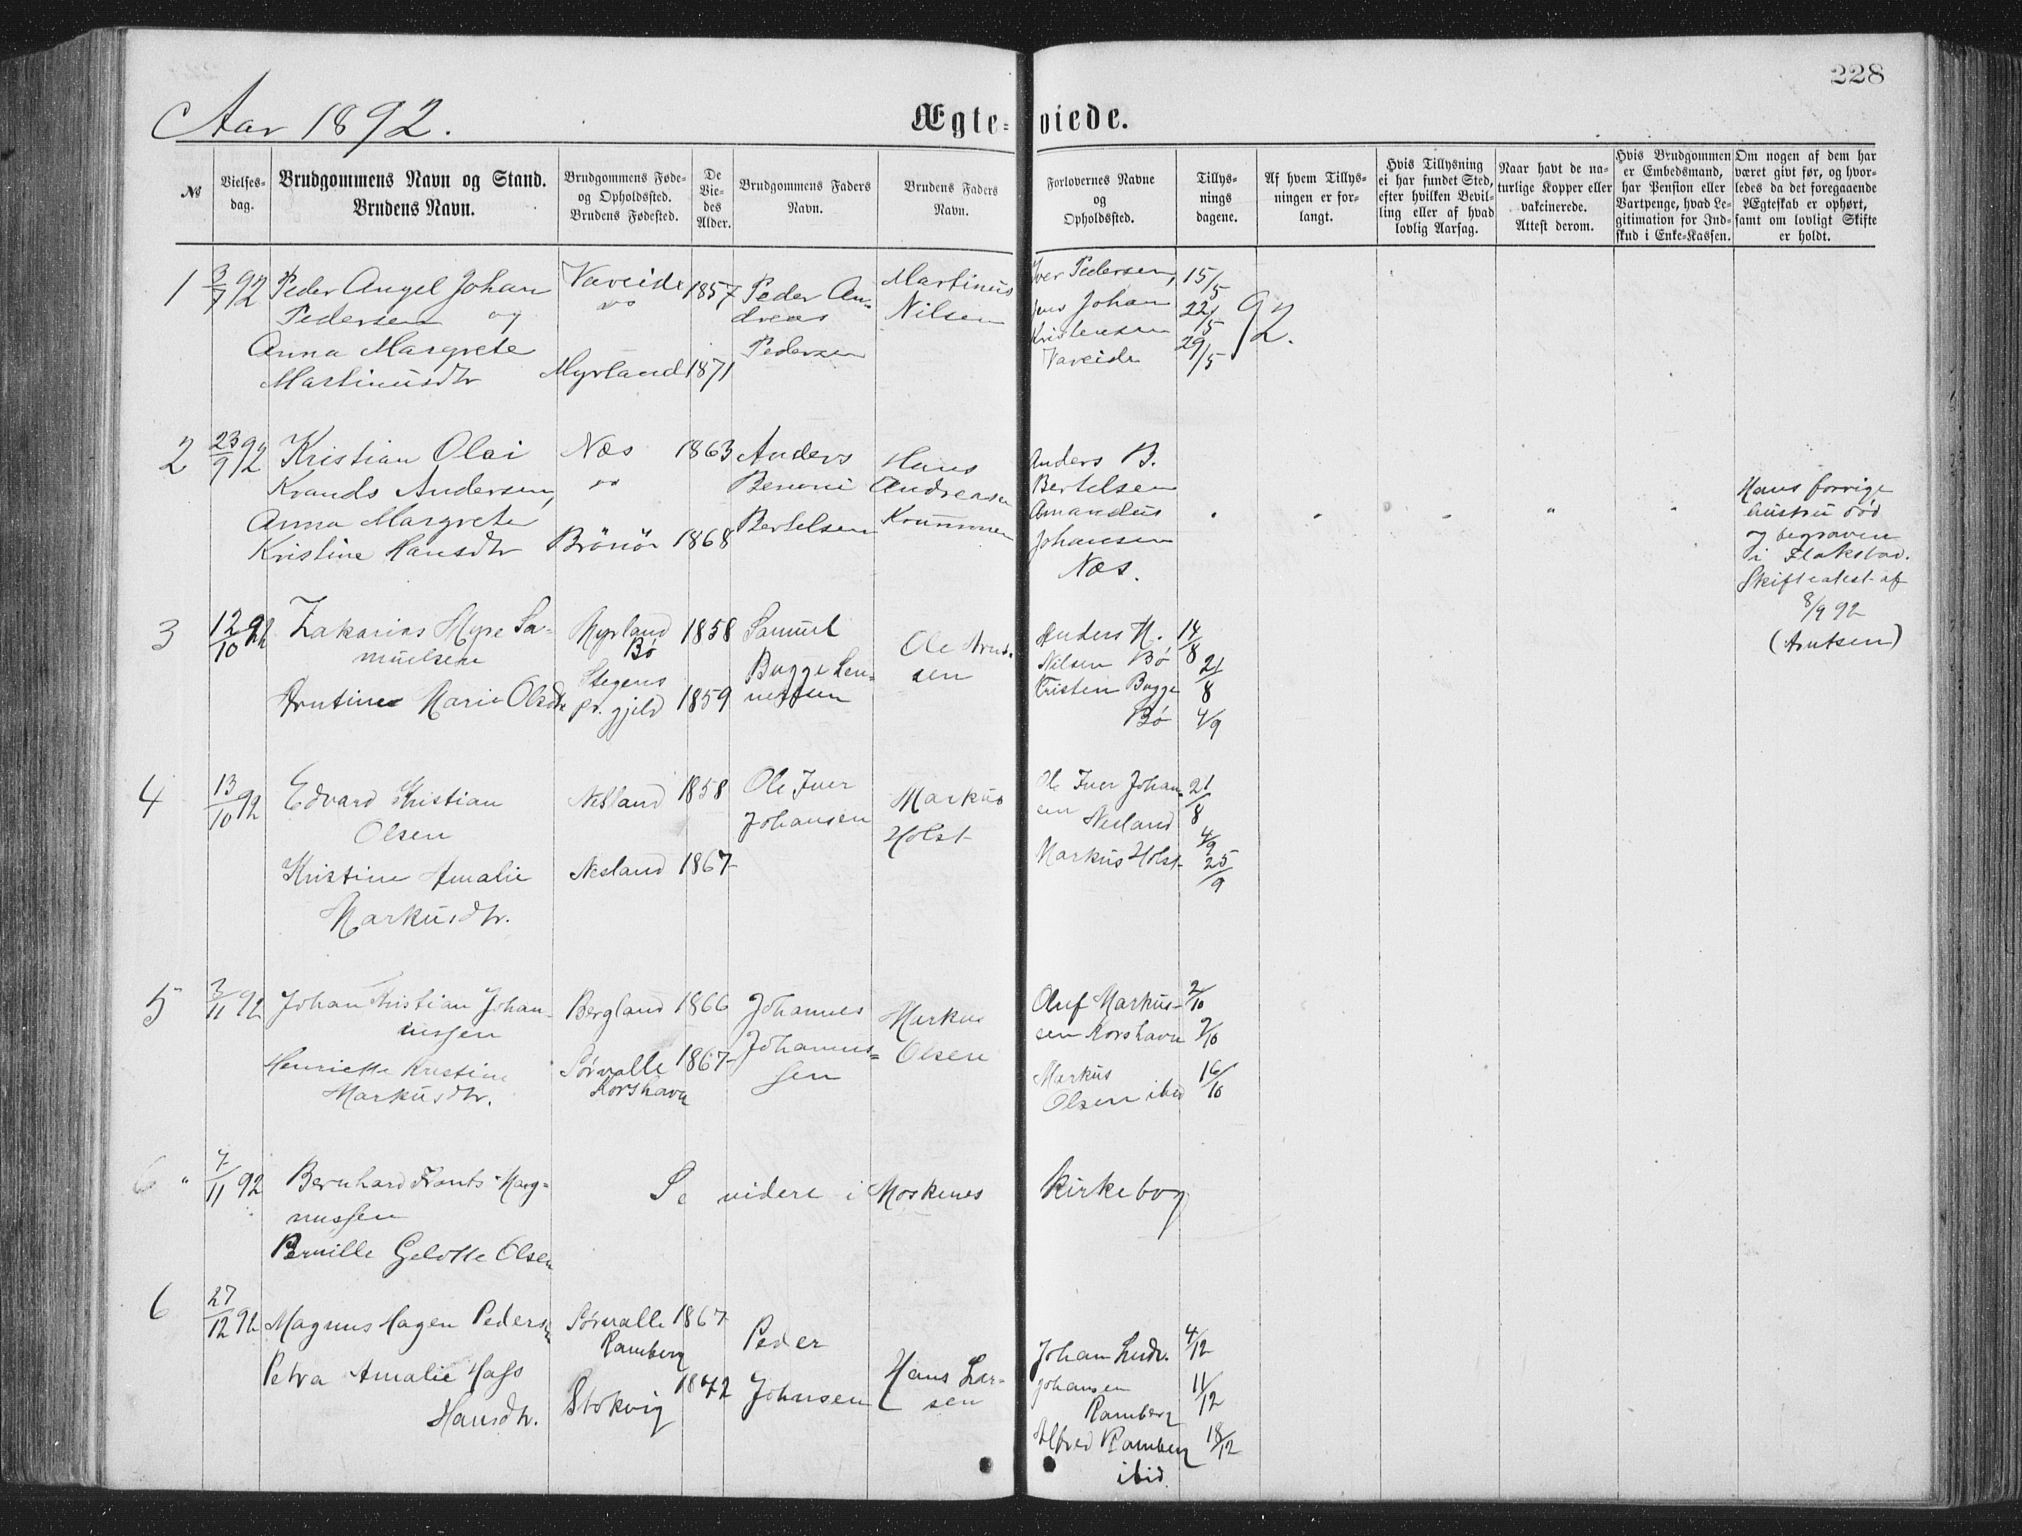 228
Aar 1892.
Ægteviede.
No
Vielsesdag.
Brudgommens Navn og Stand.
Brudens Navn.
Brudgommens Føde-
og Opholdssted.
Brudens Fødested.
De
Vie-
des
Alder.
Brudgommens Faders
Navn.
Brudens Faders
Navn.
Forlovernes Navne
og
Opholdssted.
Tillys-
nings
dagene.
Af hvem Tillys-
ningen er for-
langt.
Hvis Tillysning
ei har fundet Sted,
efter hvilken Bevil-
ling eller af hvad
lovlig Aarsag.
Naar havt de na-
turlige Kopper eller
vakcinerede.
Attest derom.
Hvis Brudgommen
er Embedsmand,
har Pension eller
Vartpenge, hvad Le-
gitimation for Ind-
skud i Enke-Kassen.
Om nogen af dem har
været givt før, og hvor-
ledes da det foregaaende
Ægteskab er ophørt,
samt om lovligt Skifte
er holdt.
1 3/7 92
Peder Angel Johan
Pedersen og
Anna Margrete
Martinusdtr
Vareide
Myrland
1857
1871
Peder An-
dreas
Pedersen
Martinus
Nilsen
Iver Pedersen,
Jens Johan
Kristensen
Vareide
15/5
22/5
29/5
92.
2 23/9 92
Kristian Olai
Krands Andersen,
Anna Margrete
Kristine Hansdtr
Næs
Brönö
1863
1868
Anders
Benoni
Bertelsen
Hans
Andreasen
Krumme
Anders B.
Bertelsen
Amandus
Johansen
Næs.
Hans forrige
hustru död
og begraven
i Flakstad.
Skifteatest af
8/9 92
(Arntsen)
3 12/10 92
Zakarias Hyse Sa-
muelsen
Arntine Marie Olsdtr
Myrland
Bø
Stegens
pr. gjeld
1858
1859
Samuel
Bugge Len-
nertsen
Ole Arnt-
sen
Anders N.
Nilsen Bø
Kristen Bugge
Bø
14/8
21/8
4/9
4 13/10 92
Edvard Kristian
Olsen
Kristine Amalie
Markusdtr.
Nesland
Nesland
1858
1867
Ole Iver
Johansen
Markus
Holst
Ole Iver Johan-
sen Nesland
Markus Holst
21/8
4/9
25/9
5 3/11 92
Johan Kristian Johan-
nissen
Henriette Kristine
Markusdtr.
Bergland
Sørvalle
Korshavn
1866
1867
Johannes
Johannes-
sen
Markus
Olsen
Oluf Markus-
sen Korshavn
Markus
Olsen ibid
2/10
9/10
16/10
6 " 7/11 92
Bernhard Frants Mag-
nussen
Pernille Gelotte Olsen
Se videre i Moskenes Kirkebog
6 27/12 92
Magnus Hagen Pedersen
Petra Amalie Hass
Hansdtr.
Sørvalle
Ramberg
Stokvig
1867
1872
Peder
Johnsen
Hans Lar-
sen
Johan Ludv.
Johansen
Ramberg
Alfred Ramberg
ibid.
4/12
11/12
18/12